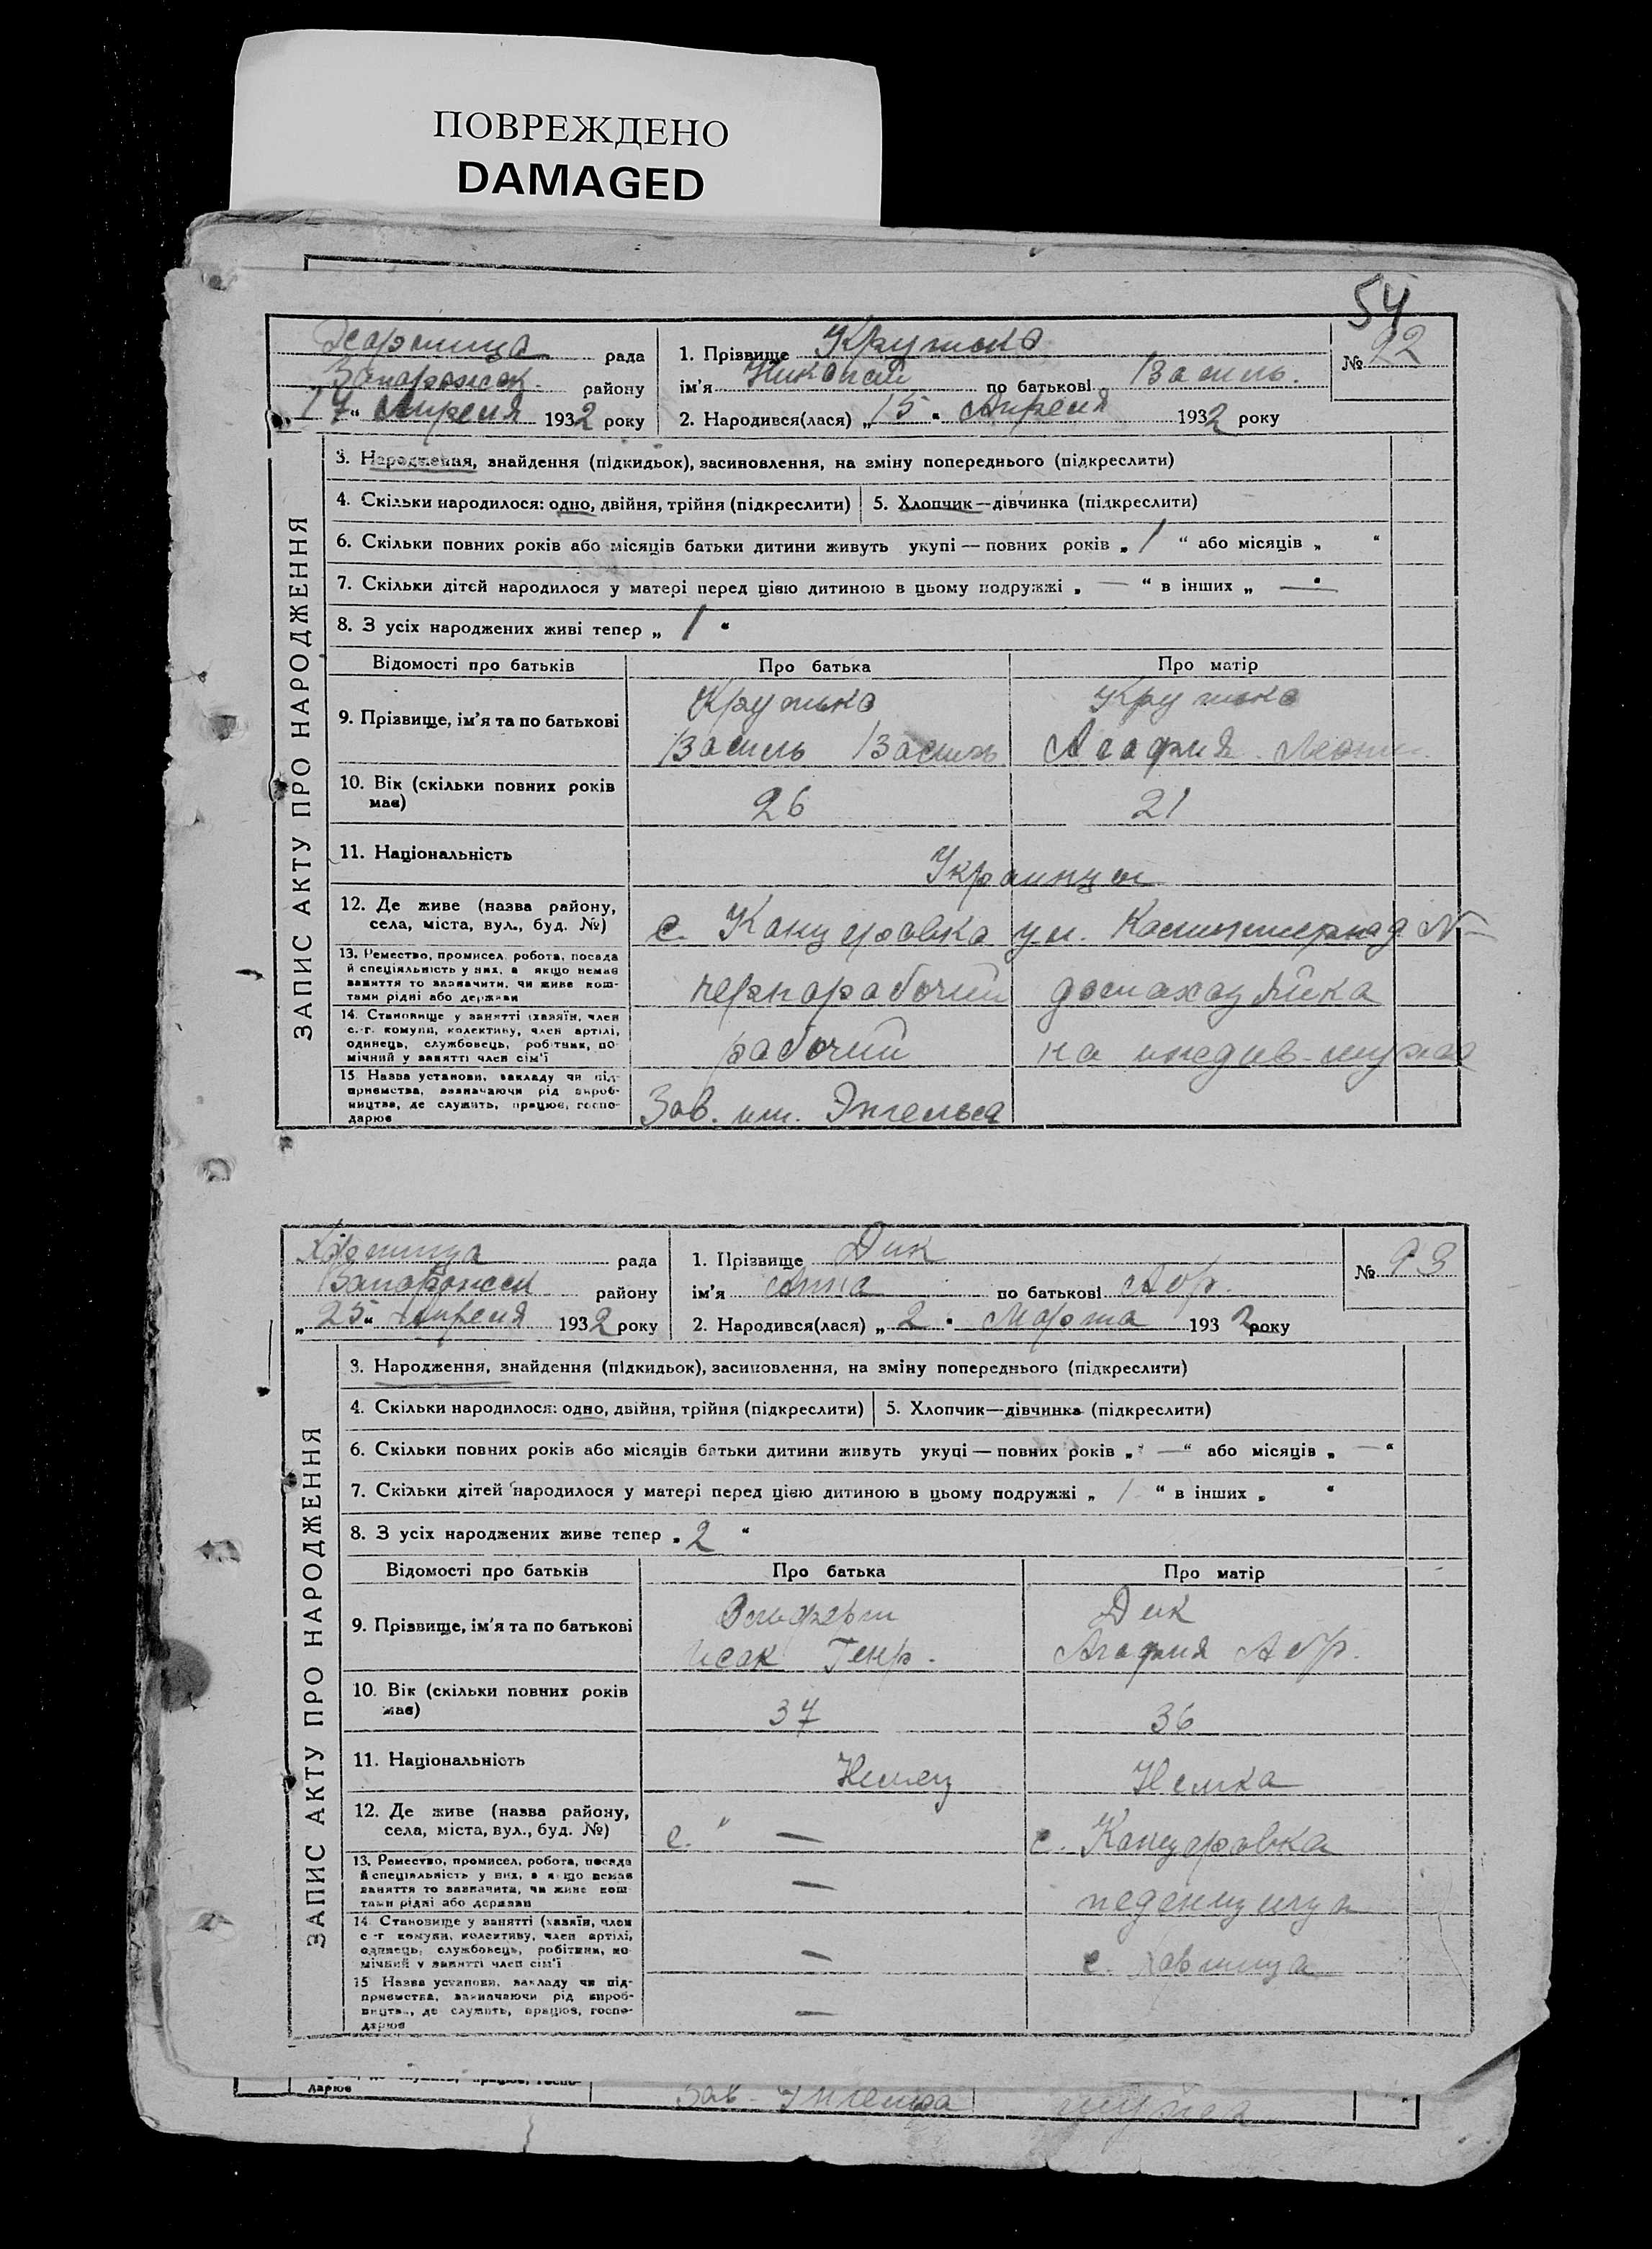 ПОВРЕЖДЕНО
DAMAGED
54
рада
Запорожск. району
17 " Апреля 1932 року
1. Прізвище Крутько
ім'я Николай по батькові Василь.
2. Народився(лася) „ 15 " Апреля 1932 року
№ 92
ЗАПИС АКТУ ПРО НАРОДЖЕННЯ
3. Народження, знайдення (підкидьок), засиновлення, на зміну попереднього (підкреслити)
4. Скільки народилося: одно, двійня, трійня (підкреслити)
5. Хлопчик—дівчинка (підкреслити)
6. Скільки повних років або місяців батьки дитини живуть укупі — повних років „ 1 " або місяців „ "
7. Скільки дітей народилося у матері перед цією дитиною в цьому подружжі „ — " в інших „ — "
8. З усіх народжених живі тепер „ 1 "
Відомості про батьків Про батька Про матір
9. Прізвище, ім'я та по батькові
Крутько Крутько
Василь Василь. Агафия
10. Вік (скільки повних років має) 26 21
11. Національність Украинцы
12. Де живе (назва району, села, міста, вул., буд. №)
с. Канцеровка ул. №—
13. Ремество, промисел, робота, посада й спеціяльність у них, а якщо немає заняття то зазначити, чи живе коштами рідні або держави
чернорабочий домахозяйка
14. Становище у занятті (хазяїн, член с.-г. комуни, колективу, член артілі, одинець, службовець, робітник, помічний у занятті член сім'ї
рабочий на иждив. мужа
15. Назва установи, закладу чи підприємства, зазначаючи рід виробництва, де служить, працює, господарює
Зав. им. Энгельса
рада
Запорожск району
„ 25 " Апреля 1932 року
1. Прізвище Дик
ім'я Анна по батькові Абр.
2. Народився(лася) „ 2 " Марта 1932 року
№ 93
ЗАПИС АКТУ ПРО НАРОДЖЕННЯ
3. Народження, знайдення (підкидьок), засиновлення, на зміну попереднього (підкреслити)
4. Скільки народилося: одно, двійня, трійня (підкреслити)
5. Хлопчик—дівчинка (підкреслити)
6. Скільки повних років або місяців батьки дитини живуть укупі — повних років „ — " або місяців „ — "
7. Скільки дітей народилося у матері перед цією дитиною в цьому подружжі „ 1 " в інших „ "
8. З усіх народжених живе тепер „ 2 "
Відомості про батьків Про батька Про матір
9. Прізвище, ім'я та по батькові
Дик
Исак Генр. Агафия Абр.
10. Вік (скільки повних років має) 37 36
11. Національність Немец Немка
12. Де живе (назва району, села, міста, вул., буд. №)
с. " — с. Канцеровка
13. Ремество, промисел, робота, посада й спеціяльність у них, а якщо немає заняття то зазначити, чи живе коштами рідні або держави
—
14. Становище у занятті (хазяїн, член с.-г. комуни, колективу, член артілі, одинець, службовець, робітник, помічний у занятті член сім'ї
— с.
15. Назва установи, закладу чи підприємства, зазначаючи рід виробництва, де служить, працює, господарює
—
дарює
Зав. мужа